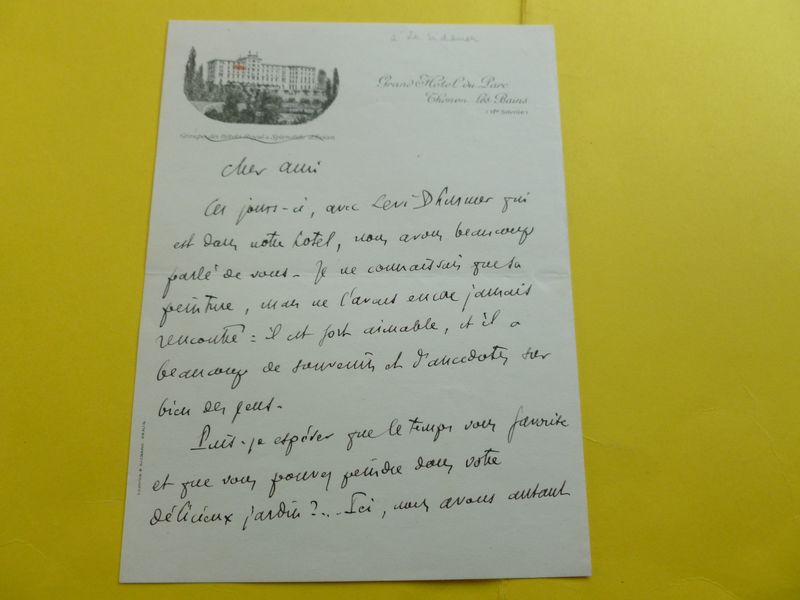 à Le Sidaner
Grand Hôtel du Parc
Thonon-les-Bains
(Hte Savoie)
Cher ami
Ces jours-ci, avec Levi Dhurmer qui
est dans notre hotel, nous avons beaucoup
parlé de vous - Je ne connaissais que sa
peinture, mais ne l'avais encore jamais
rencontré : il est fort aimable, et il a
beaucoup de souvenirs et d'anecdotes sur
bien des gens -
Puis-je espérer que le temps vous favorise
et que vous pouvez peindre dans votre
délicieux jardin ?... Ici, nous avons autant